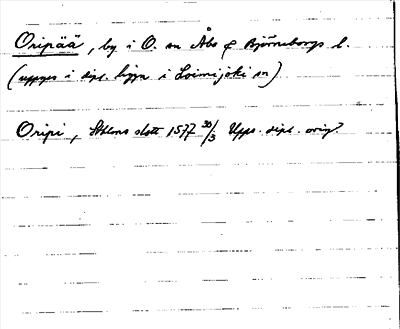 Oripää, by i O. sn Åbo & Björneborgs l.
(uppges i dipl. ligga i Loimijoki sn)
Oripi, Sthlms slott 1577 30/3 Upps. dipl. orig.